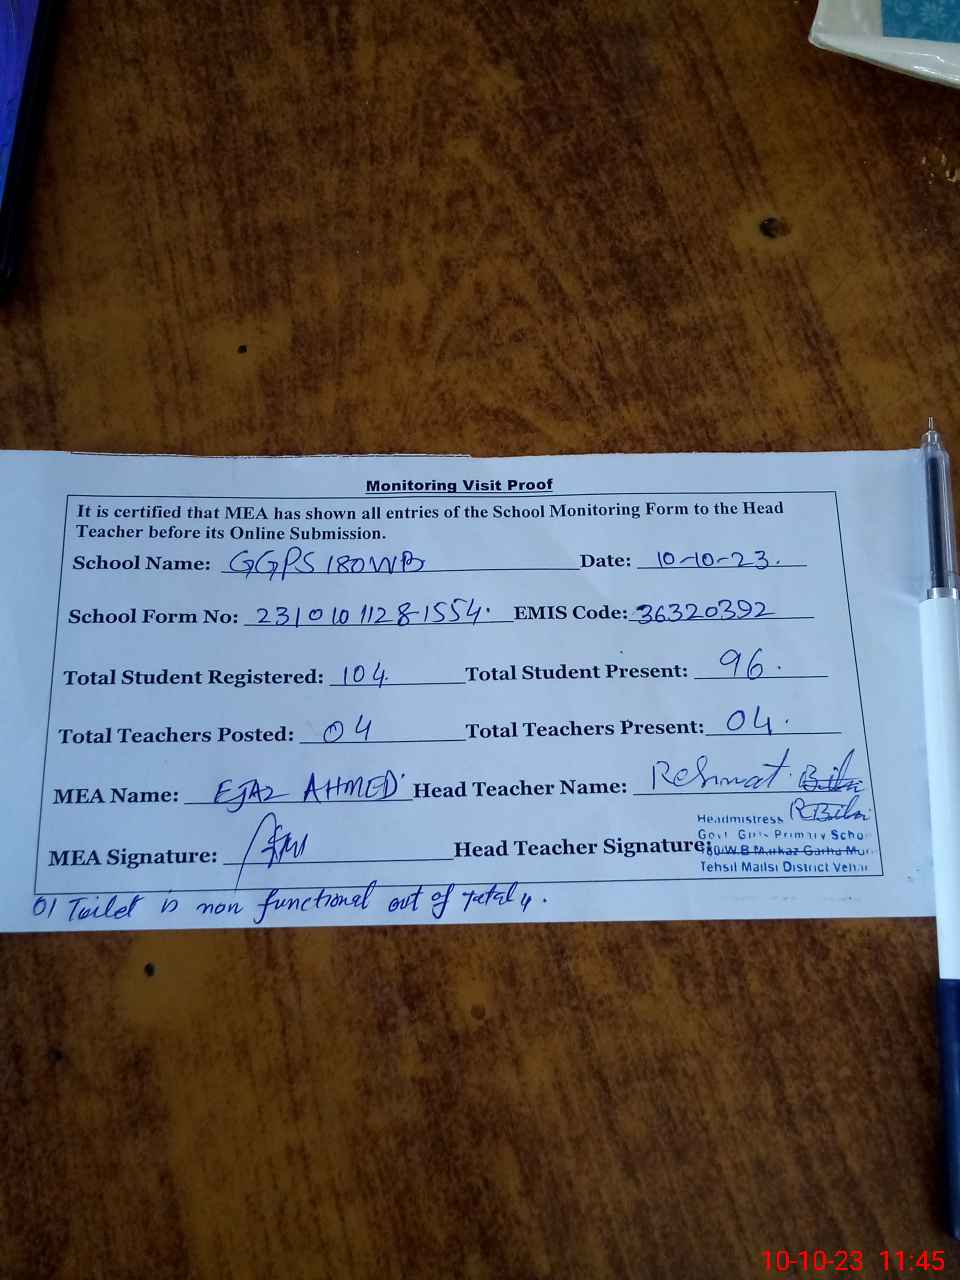 Monitoring Visit Proof
It is certified that MEA has shown all entries of the School Monitoring Form to the Head
Teacher before its Online Submission.
School Name: GGPS 180WB Date: 10-10-23.
School Form No: 23101011281554. EMIS Code: 36320392
Total Student Registered: 104. Total Student Present: 96.
Total Teachers Posted: 04 Total Teachers Present: 04.
MEA Name: EJAZ AHMED Head Teacher Name: Rehmat
Headmistress
MEA Signature: Head Teacher Signature:
Govt Girls Primary Schoo
W.B Markaz Garha Mor
Tehsil Mailsi District Vehari
01 Toilet is non functional out of total 4.
10-10-23 11:45